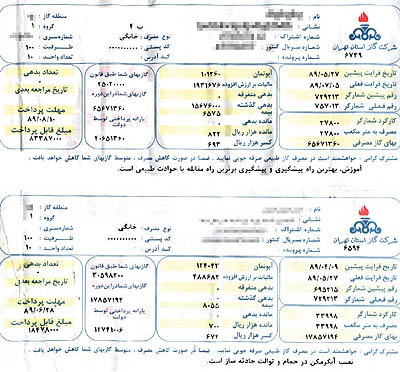 نام :
نشانی :
شماره اشتراک :
شماره سریال کنتور :
شماره پرونده :
ب ۴
نوع مصرف : خانگی
کد پستی : ۰۰۰۰۰۰۰۰۰۰
شماره‌سری :
منطقه گاز :
گروه : ۱
ظرفیت : ۱۰۰
تعداد واحد : ۱۰۰
شرکت گاز استان تهران
۶۷۳۹
تاریخ قرائت پیشین ۸۹/۰۵/۲۷
تاریخ قرائت فعلی ۸۹/۰۷/۰۵
رقم پیشین شمارگر ۷۲۹۲۱۳
رقم فعلی شمارگر ۷۵۷۰۱۳
کارکرد شمارگر ۲۷۸۰۰
مصرف به متر مکعب ۲۷۸۰۰
بهای گاز مصرفی ۶۵۶۷۱۳۶۰
آبونمان ۱۰۱۳۶۰
مالیات بر ارزش افزوده ۱۹۳۱۶۷۶
بدهی متفرقه ۰
بدهی گذشته ۱۵۶۷۶۰۰۰
بیمه ۶۵۷۵
مانده بدهی ۰
مانده هزار ریال ۸۲۲
کسر هزار ریال ۶۹۳
گازبهای شما طبق قانون
۲۵۰۲۰۰۰۰
گازبهای شمادراین‌دوره
۶۵۶۷۱۳۶۰
یارانه پرداختی توسط دولت
۲۰۶۵۱۳۶۰
تعداد بدهی
۰
تاریخ مراجعه بعدی
مهلت پرداخت
۸۹/۰۸/۱۰
مبلغ قابل پرداخت
۸۳۳۸۷۰۰۰
مشترک گرامی : خواهشمند است در مصرف گاز طبیعی صرفه جویی نمایید. ضمنا در صورت کاهش مصرف ، متوسط گازبهای شما کاهش خواهد یافت .
آموزش، بهترین راه پیشگیری و پیشگیری برترین راه مقابله با حوادث طبیعی است.
نام :
نشانی :
شماره اشتراک :
شماره سریال کنتور :
شماره پرونده :
نوع مصرف : خانگی
کد پستی : ۰۰۰۰۰۰۰۰۰۰
شماره‌سری :
منطقه گاز :
گروه : ۱
ظرفیت : ۱۰۰
تعداد واحد : ۱۰۰
شرکت گاز استان تهران
۶۵۹۴
تاریخ قرائت پیشین ۸۹/۰۴/۰۹
تاریخ قرائت فعلی ۸۹/۰۵/۲۷
رقم پیشین شمارگر ۶۹۵۲۱۵
رقم فعلی شمارگر ۷۲۹۲۱۳
کارکرد شمارگر ۳۳۹۹۸
مصرف به متر مکعب ۳۳۹۹۸
بهای گاز مصرفی ۱۷۸۵۷۱۹۴
آبونمان ۱۲۴۰۴۲
مالیات بر ارزش افزوده ۴۸۸۶۸۲
بدهی متفرقه ۰
بدهی گذشته ۰
بیمه ۸۰۵۵
مانده بدهی ۰
مانده هزار ریال ۷۰۰
کسر هزار ریال ۶۷۲
گازبهای شما طبق قانون
۳۰۵۹۸۲۰۰
گازبهای شمادراین‌دوره
۱۷۸۵۷۱۹۴
یارانه پرداختی توسط دولت
۱۲۷۴۱۰۰۶
تعداد بدهی
۰
تاریخ مراجعه بعدی
مهلت پرداخت
۸۹/۰۶/۲۸
مبلغ قابل پرداخت
۱۸۴۷۸۰۰۰
مشترک گرامی : خواهشمند است در مصرف گاز طبیعی صرفه جویی نمایید. ضمنا در صورت کاهش مصرف ، متوسط گازبهای شما کاهش خواهد یافت .
نصب آبگرمکن در حمام و توالت حادثه ساز است.